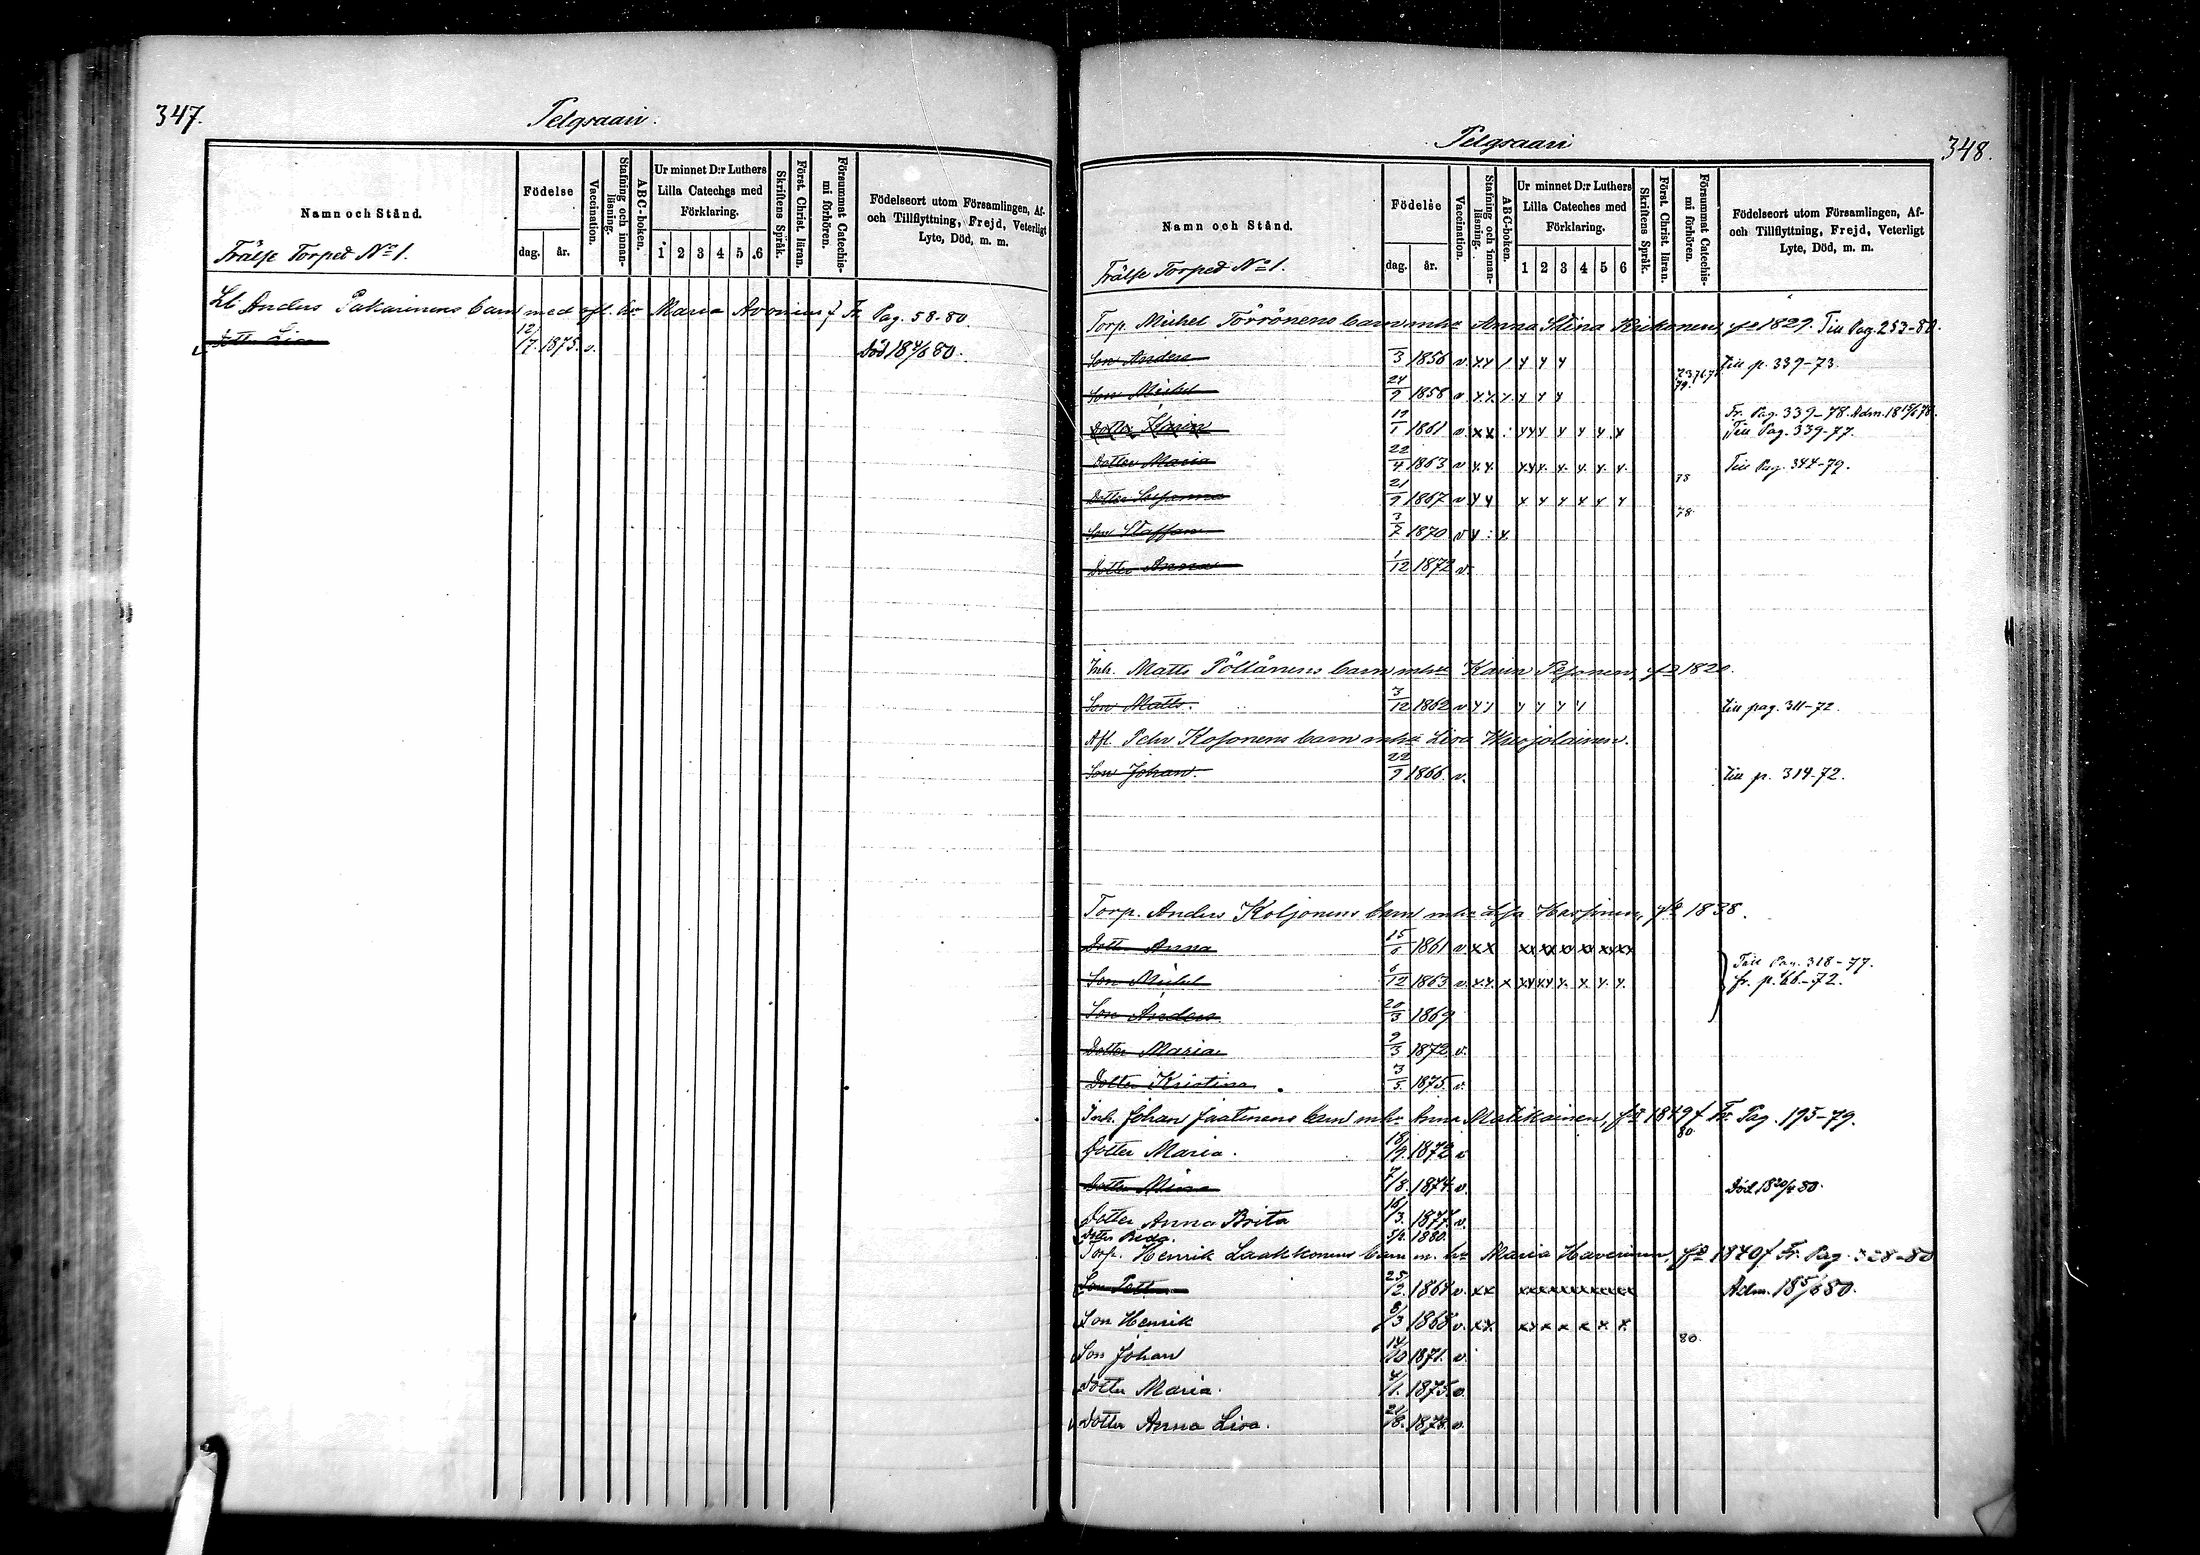 347.
Pelgraari.
Namn och Stånd.
Frälse Torped No 1.
Födelse
dag. år.
Vaccination.
Stafning och innanläsning.
ABC-boken.
Ur minnet D:r Luthers Lilla Cateches med Förklaring.
1 2 3 4 5 6
Skriftens Språk.
Först. Christ. läran.
Försummat Catechismi förhören.
Födelseort utom Församlingen, Af- och Tillflyttning, Frejd, Veterligt Lyte, Död, m. m.
Lb. Anders Pakarinens barn med afl. hu Maria Avonius f Fr. Pag. 58-80.
Dotter Lisa 12/7. 1875. v. Död 18 80.
348.
Pelgraari
Namn och Stånd.
Frälse Torped No 1.
Födelse
dag. år.
Vaccination.
Stafning och innanläsning.
ABC-boken.
Ur minnet D:r Luthers Lilla Cateches med Förklaring.
1 2 3 4 5 6
Skriftens Språk.
Först. Christ. läran.
Försummat Catechismi förhören.
Födelseort utom Församlingen, Af- och Tillflyttning, Frejd, Veterligt Lyte, Död, m. m.
Torp. Michel Törrönens barn mhu Anna Stina fd 1829. Till Pag. 253-80.
Son Anders 3 1856 v. Till p. 339-73.
Son Michel 24/9 1858 v.
Fr. Pag. 339-78. Adm.
Dotter Karin 19/1 1861 v. Till Pag. 339-77.
Dotter Maria 22/4 1863 v Till Pag. 344-79.
78
Dotter Susanna 21/9 1867 v
78.
Son Staffan 3/7 1870 v
Dotter Anna 1/12 1872 v.
Inh. Matts Pöllänens barn mhu Karin fd 1820.
Son Matts. 3/12 1862 v Till pag. 311-72.
Afl. Pehr Kosonens barn mhu Lisa
Son Johan. 22/9 1866. v. Till p. 314-72.
Torp. Anders Koljonens barn mhu Lisa fd 1838.
Dotter Anna 15/6 1861 v. x x
Son Michel 6/12 1863 v.
Till Pag. 318-77.
fr. p. 66-72.
Son Anders 20/3 1869
Dotter Maria 9/3 1872 v.
Dotter Kristina 3/5 1875. v.
Inh. Johan Jaatinens barn mhu Anna Matikainen, fd 1849 f Fr. Pag. 195-79.
80
Dotter Maria. 18/9. 1872 v
Dotter Mina 7/8. 1874. v. Död 18 80.
Dotter Anna Brita 16/3. 1877. v.
Dotter Beda. 1880.
Torp. Henrik Laakkonens barn m. hu Maria Haverinen, fd 1840 f Fr. Pag. 80
Son Petter 25/12. 1864 v. xx Adm. 18 80.
Son Henrik 8/3 1868 v. xx
80.
Son Johan 14/10 1871. v.
Dotter Maria. 4/1. 1875. v.
Dotter Anna Lisa. 21/8. 1878. v.